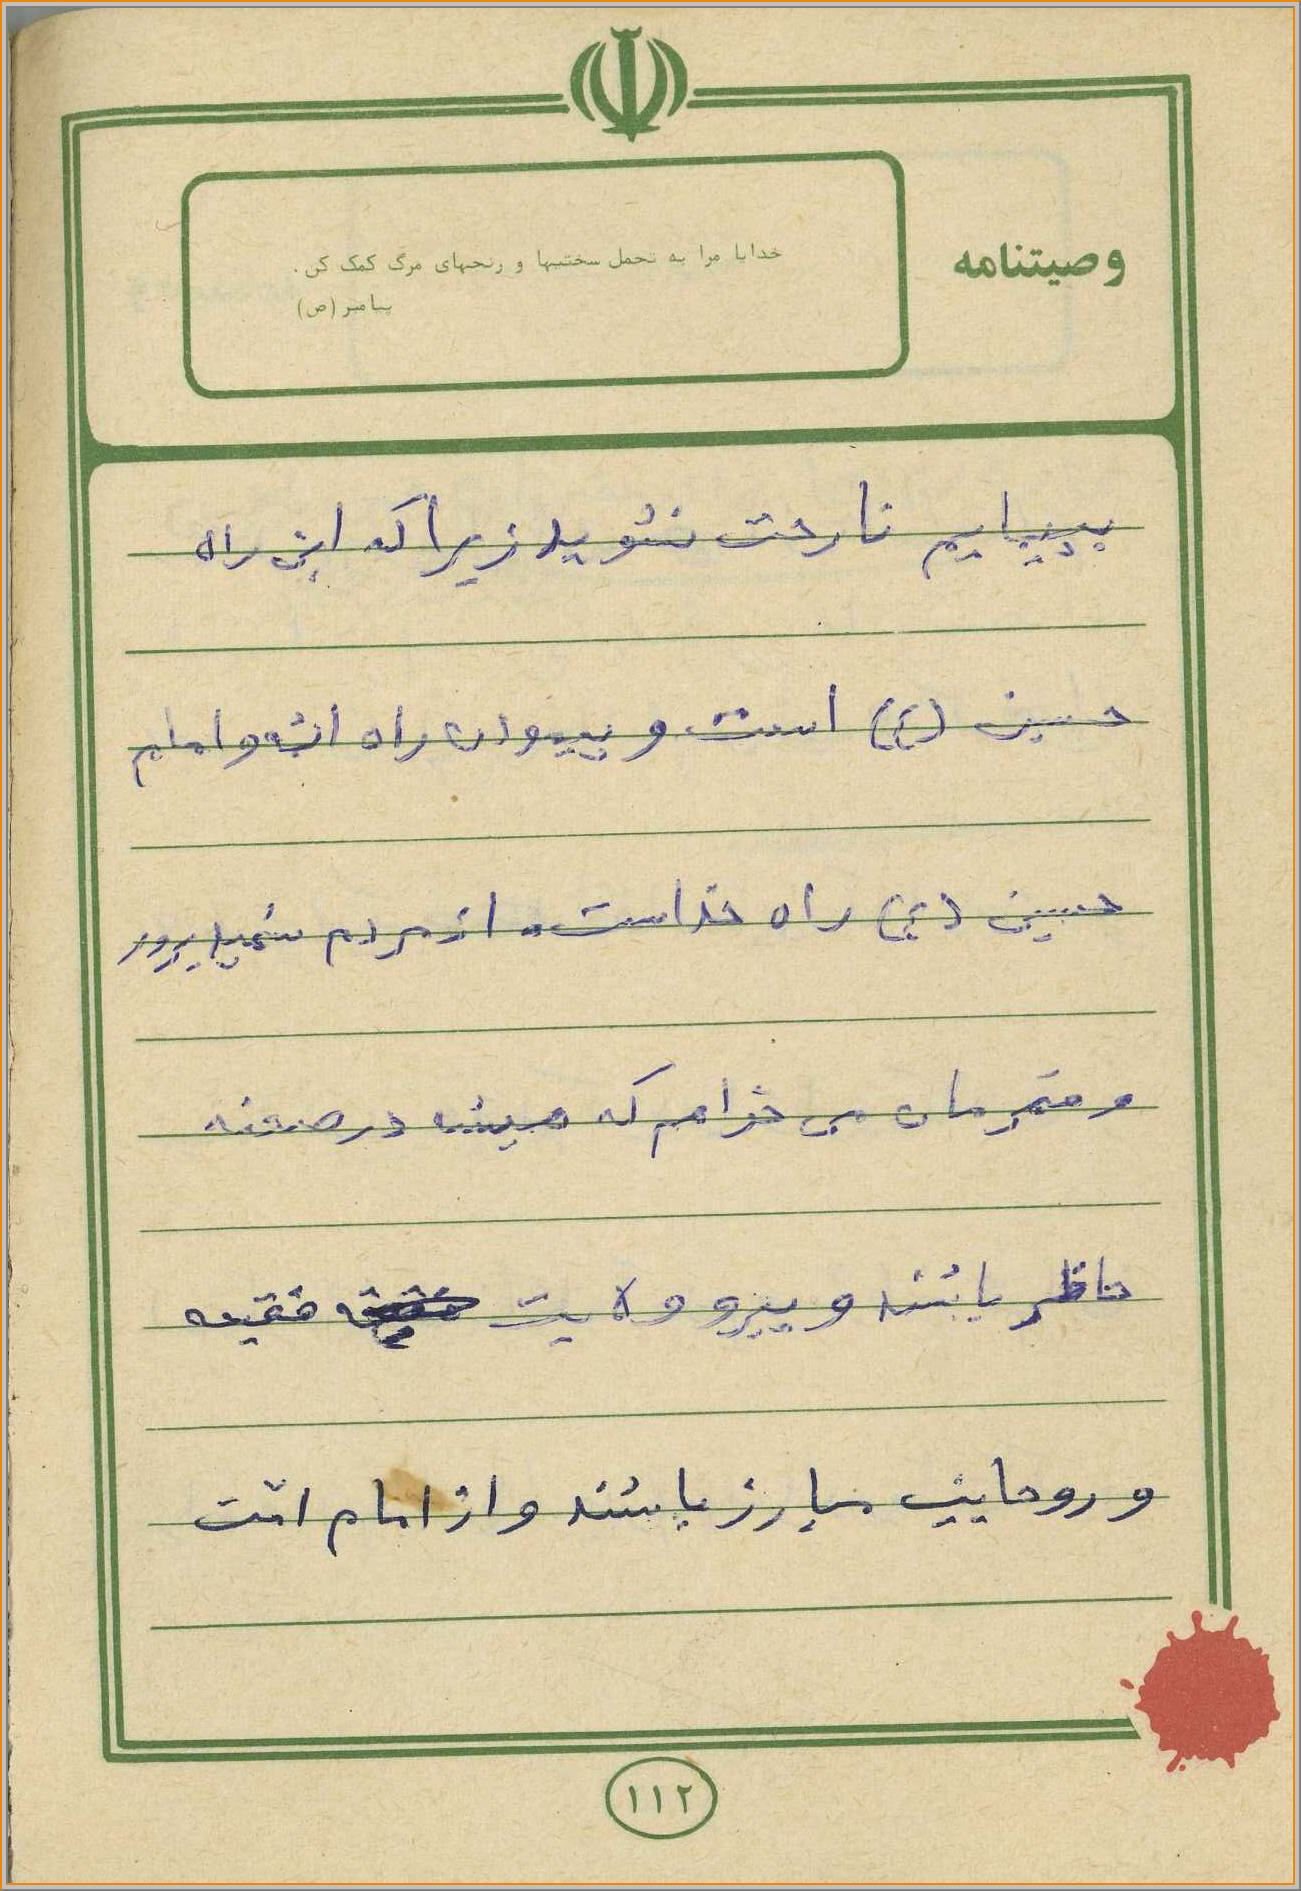 وصیتنامه
خدایا مرا به تحمل سختیها و رنجهای مرگ کمک کن.
پیامبر (ص)
بپیمایم ناراحت نشوید زیرا که این راه
حسین (ع) است و پیمودن راه ائمه و امام
حسین (ع) راه خداست. از مردم شهیدپرور
و قهرمان می خواهم که همیشه در صحنه
حاظر باشند و پیرو ولایت فقیه
و روحانیت مبارز باشند و از امام امت
۱۱۲